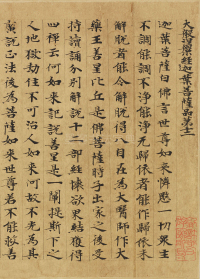 大般涅槃經迦葉菩薩品第十二
迦葉菩薩白佛言世尊如來憐愍一切衆生
不調能調不淨能淨无歸依者能作歸依未
解脫者能令解脫得八自在為大醫師作大
藥王善星比丘是佛菩薩時子出家之後受
持讀誦分別解說十二部經壞欲界結獲得
四禪云何如來記說善星是一闡提斯下之
人地獄劫住不可治人如來何故不先為其
演說正法後為菩薩如來世尊若不能救善